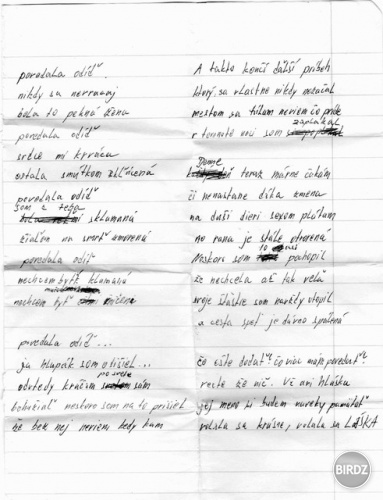 povedala odíď.
nikdy sa nevracaj
bola to pekná žena
povedala odíď
srdce mi krváca
ostala smútkom zničená
povedala odíď
som z teba sklamaná
žiaľom na smrť umorená
povedala odíď
nechcem byť klamaná
nechcem byť
povedala odíď...
ja hlupák som odišiel...
odvtedy kráčam sám
bohužiaľ neskoro som na to prišiel
že bez nej neviem kedy kam
A takto končí ďalší príbeh
ktorý sa vlastne nikdy nezačal
mestom sa túlam neviem čo príde
v temnote noci som zaplakal
Domje teraz márne čakám
či nenastane dáka zmena
na duši dieri sexom plátam
no rana je stále otvorená
Neskoro som to pochopil
že nechcela až tak veľa
svoje šťastie som navždy utopil
a cesta späť je dávno spálená
Čo ešte dodať? čo viac mám povedať?
resta že nič. Už ani hlásku
jej meno si budem naveky pamätať
volala sa krásne, volala sa LÁSKA
BIRDZ